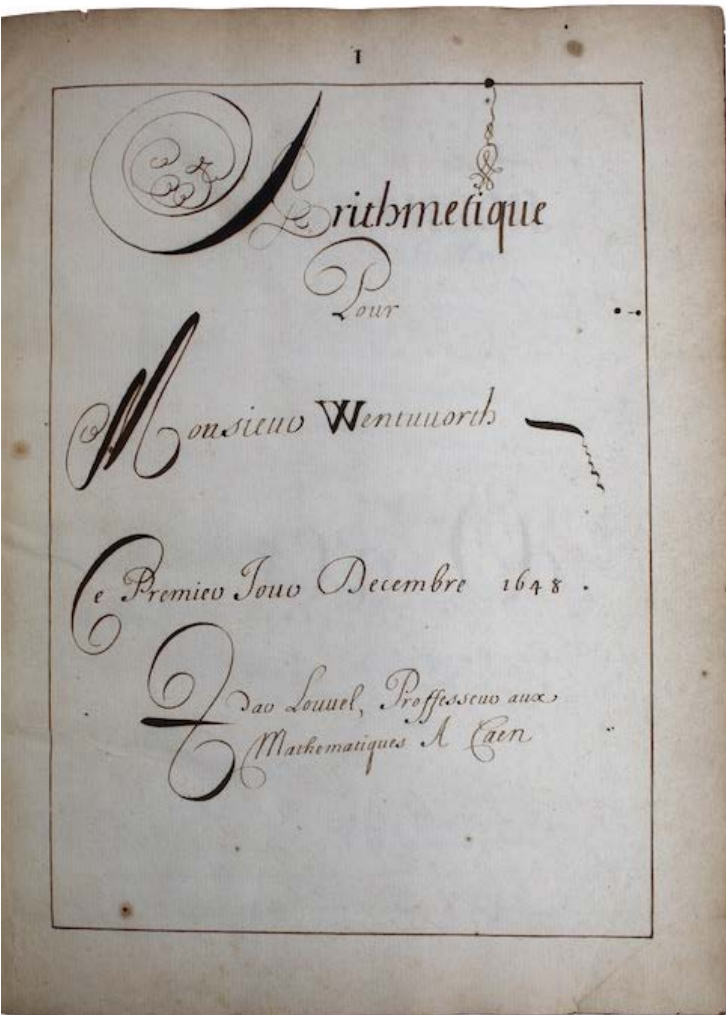 1
Arithmetique
Pour
Monsieur Wentuuorth
Ce Premier Iour Decembre 1648 .
Par Louuel, Proffesseur aux
Mathematiques A Caen